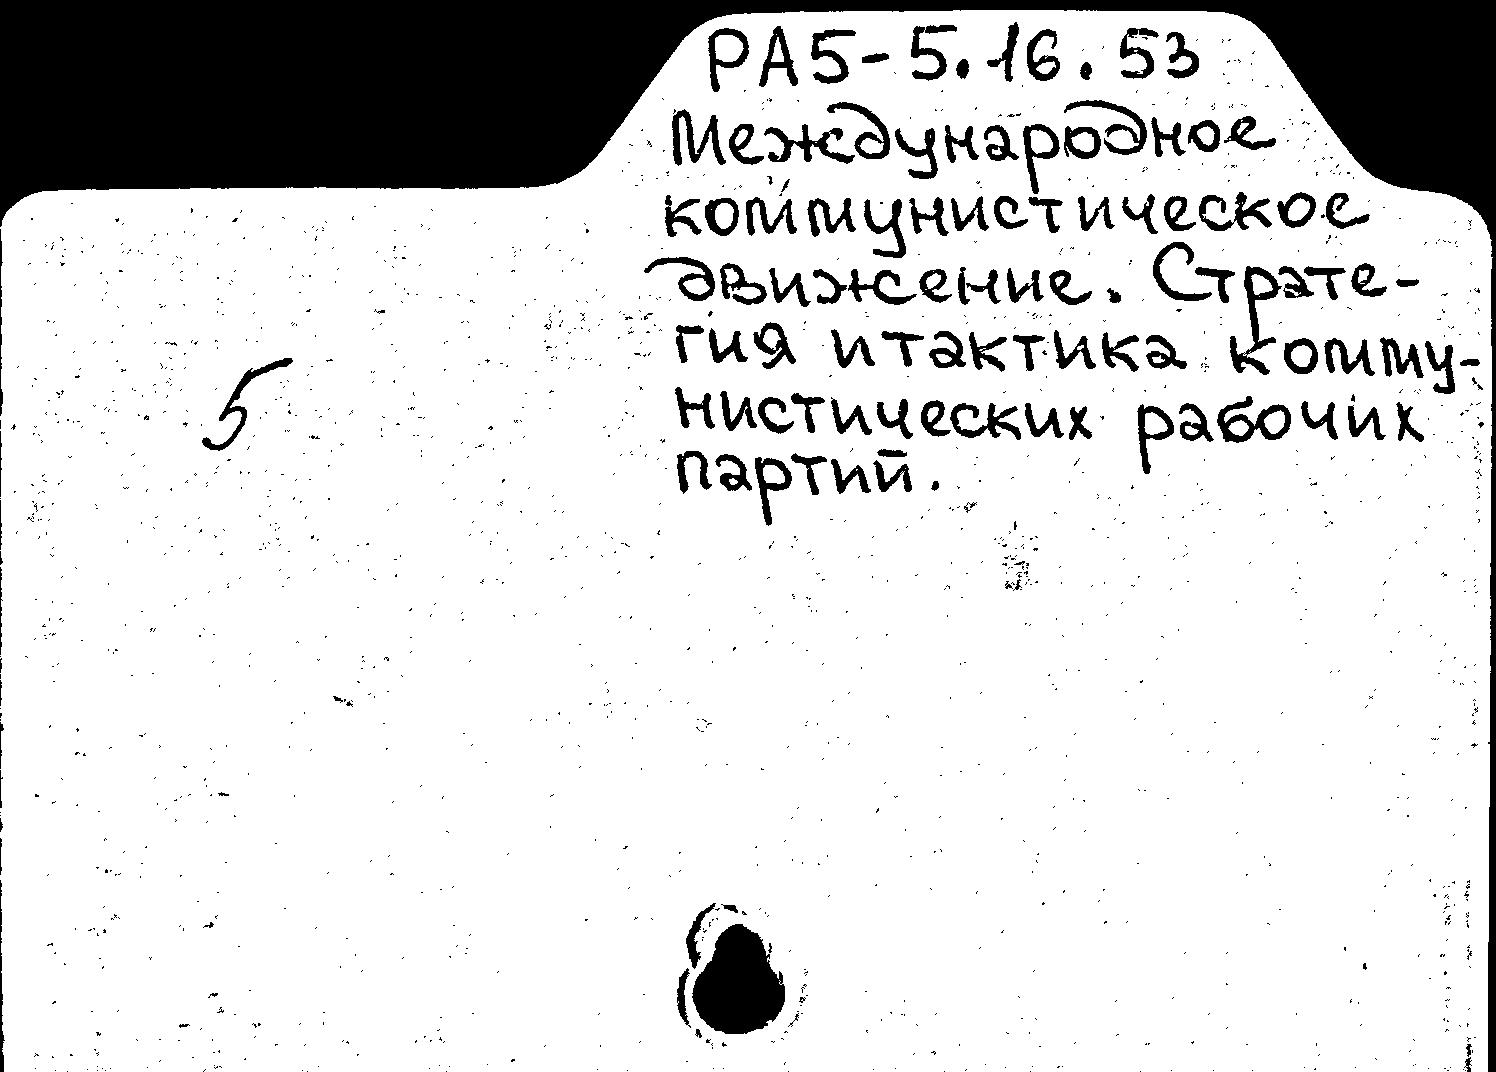 РА5-5.16.53
Международное
коммунистическое
движение. Страте-
гия и тактика комму-
нистических рабочих
партий.
5